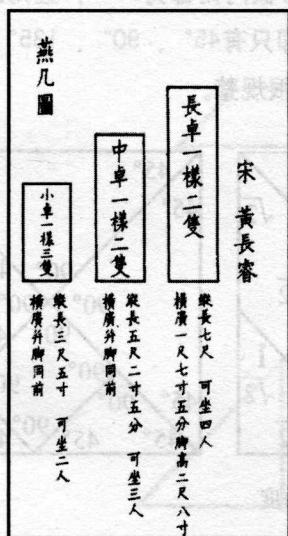 燕几圖
宋 黃長睿
長卓一樣二隻
縱長七尺 可坐四人
橫廣一尺七寸五分脚高二尺八寸
中卓一樣二隻
縱長五尺二寸五分 可坐三人
橫廣并脚同前
小卓一樣三隻
縱長三尺五寸 可坐二人
橫廣并脚同前